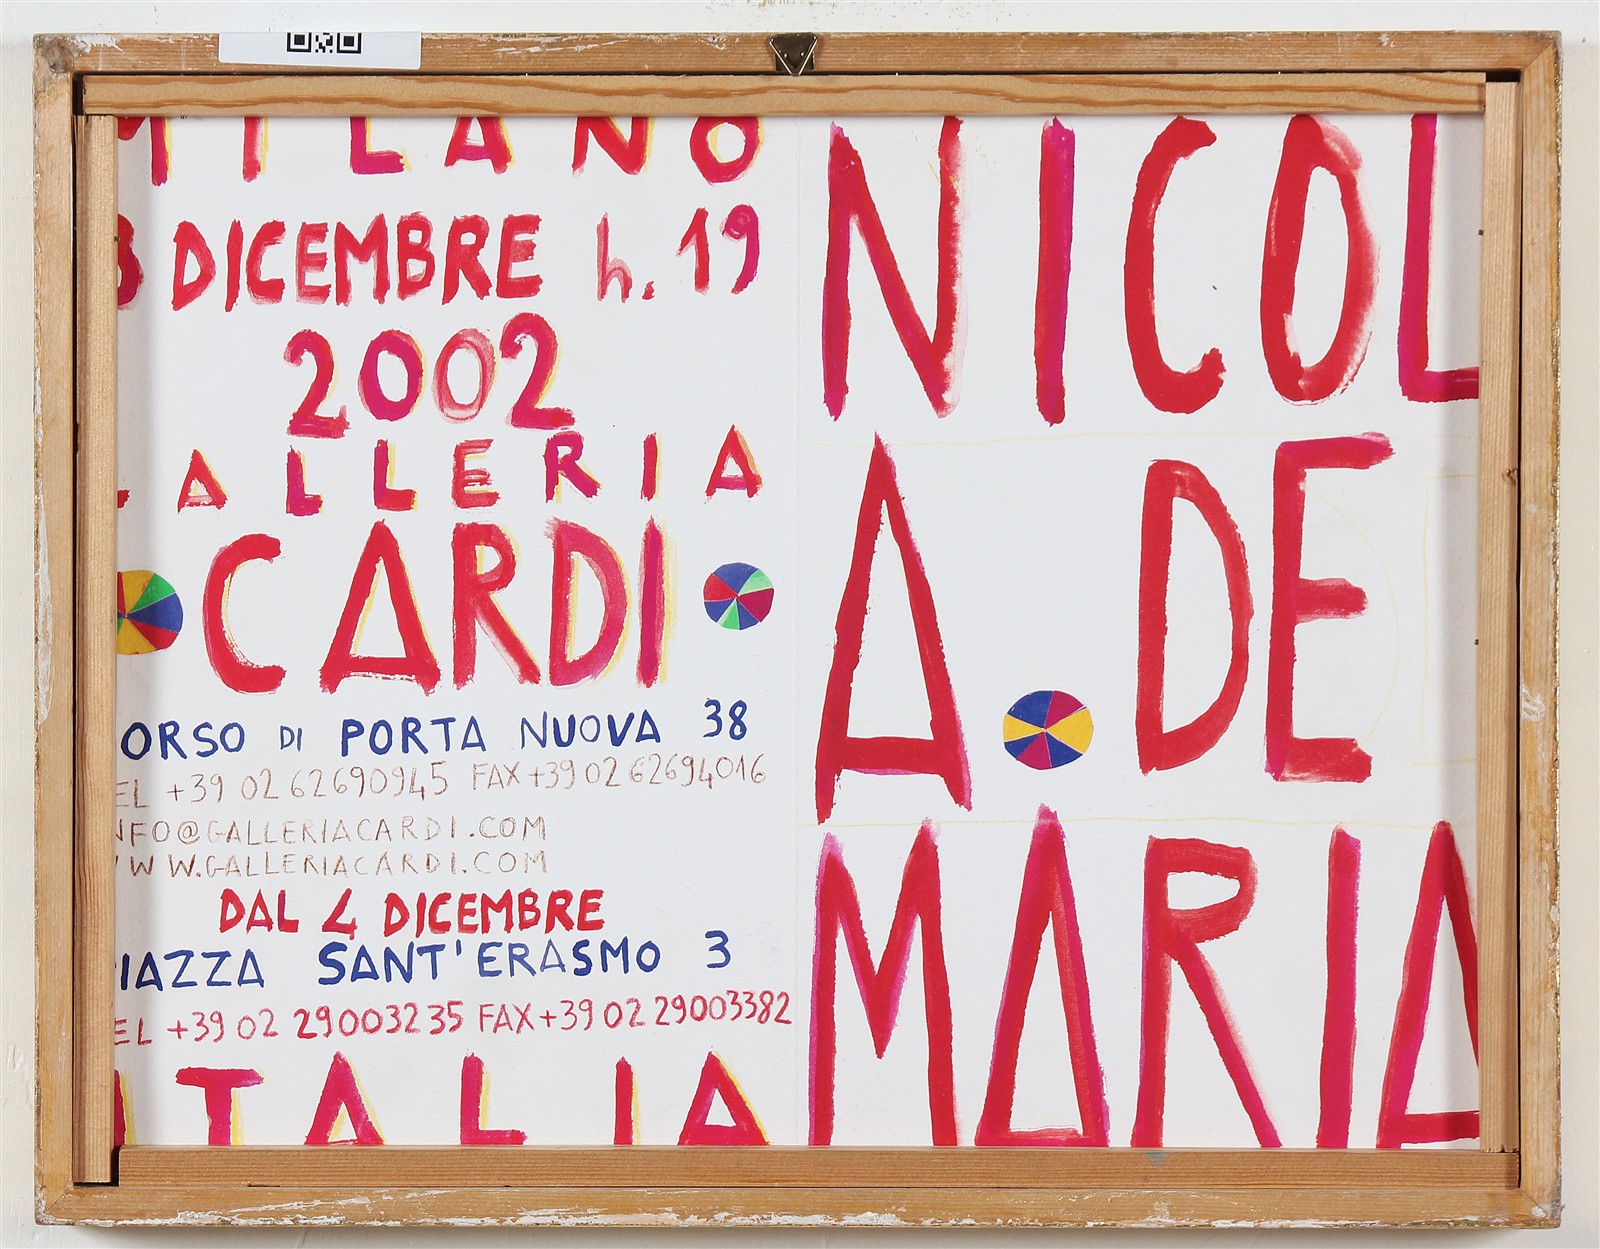 MILANO
3 DICEMBRE h. 19
2002
ALLERIA
CARDI
ORSO DI PORTA NUOVA 38
EL +39 02 62690945 FAX +39 02 62694016
NFO@GALLERIACARDI.COM
WW.GALLERIACARDI.COM
DAL 4 DICEMBRE
IAZZA SANT'ERASMO 3
EL +39 02 29003235 FAX +39 02 29003382
ITALIA
NICOL
A. DE
MARIA